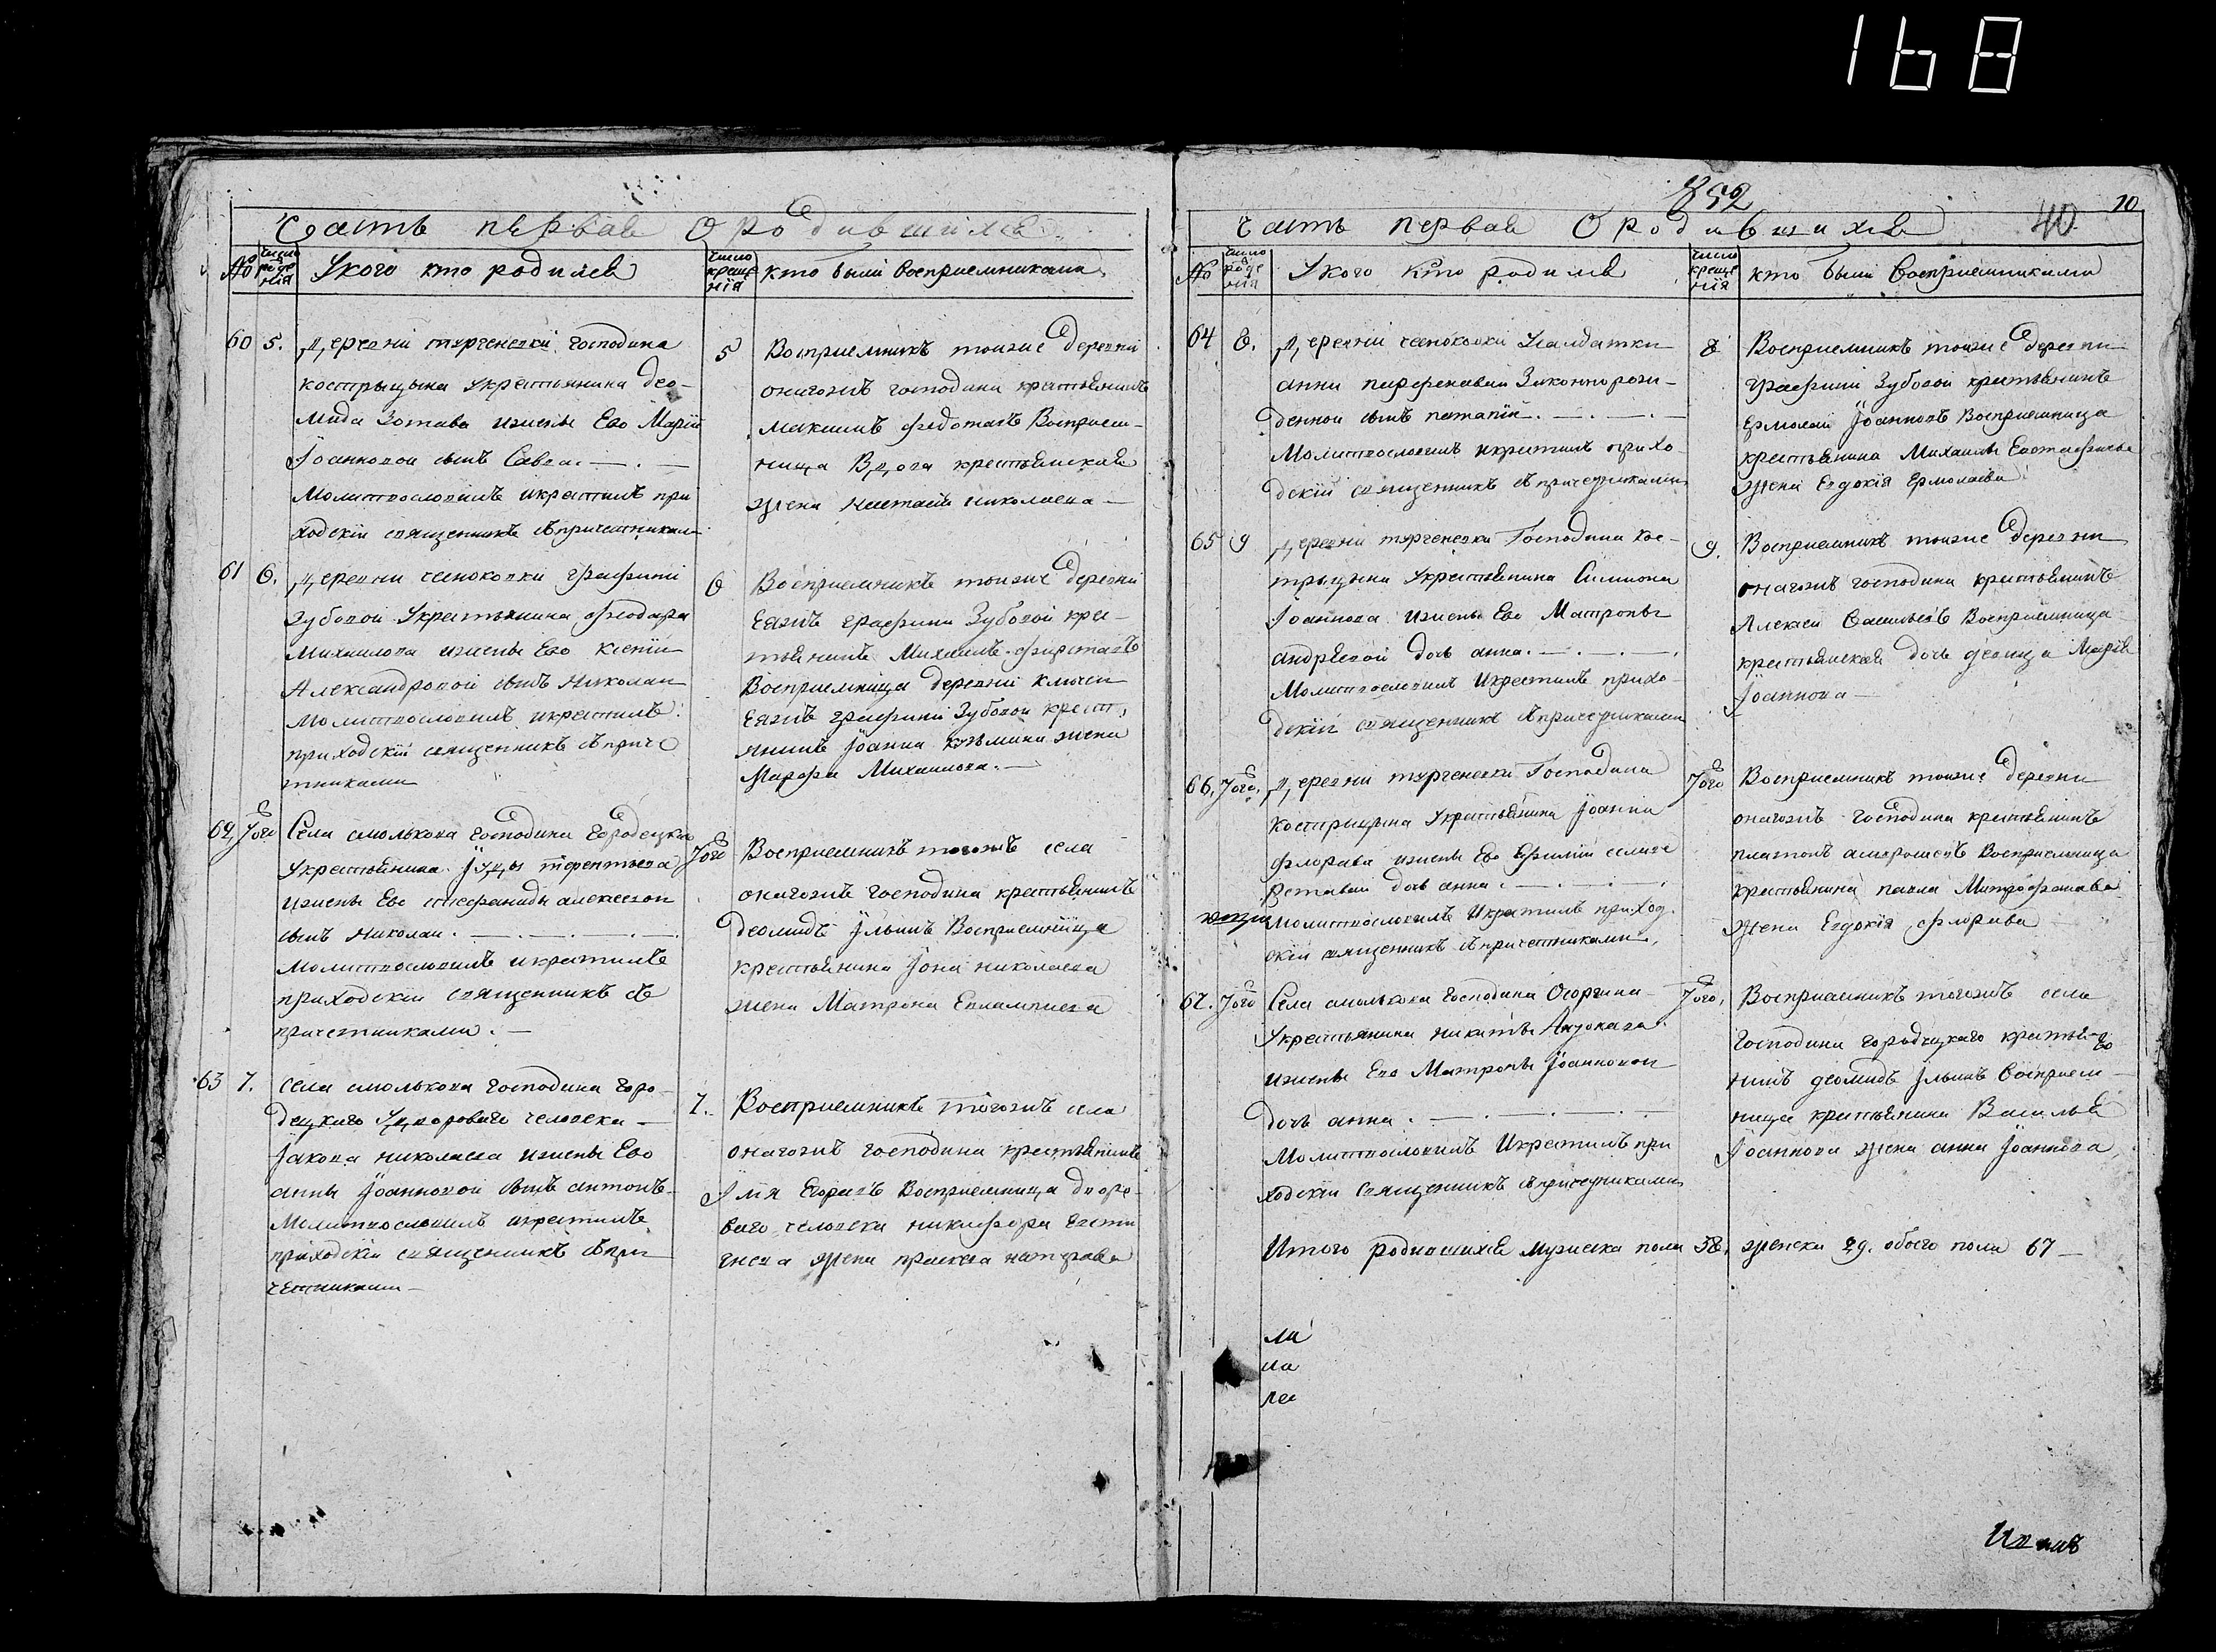 168
Часть первая О родившихся
№ число рожде нія
У кого кто родился
число креще нія
кто были восприемниками
60 5.
Деревни тургеневки господина
кострицына укрестьянина део-
мида Зотава изжены Ево Маріи
Іоанновой сынъ Савва. — . —
Молитвословилъ икрестилъ при
ходскій священникъ съпричетниками
5
Восприемникъ тоиже деревни
оногожъ господина крестьянинъ
Максимъ федотавъ Восприем-
ница Вдова крестьянская
жена николаева —
61 6.
Деревни чесноковки графини
Зубовой Укрестьянина феодора
Михаилова изжены Ево Ксеніи
Александровой сынъ Николаи
молитвословилъ икрестилъ
приходскій священникъ съприче
тниками
6
Восприемникъ тоиже деревни
Еяжъ графини Зубовой кре-
стьянинъ Михаилъ
Восприемница деревни ключеи
Еяжъ графини Зубовой крест
янинъ Іоанна козьмина жена
Марфа Михаилова. —
62, 7ого
Села смолькова господина Городецкаго
укрестьянина Іуды терентьева
изжены Ево стефаниды алексеевои
сынъ Николаи. — . — . — . —
Молитвословилъ икрестилъ
приходскіи священникъ съ
причетниками. —
7ого
Восприемникъ тогожъ села
оногожъ господина крестьянинъ
деомидъ Ильинъ Восприемница
крестьянина Іона николаева
жена Матрона Евлампиева
63 7.
села смолькова господина горо-
децкаго Удвороваго человека —
Іакова николаева изжены Ево
анны Іоанновой сынъ антонъ.
Молитвословилъ икрестилъ
приходскіи священникъ съпри
четниками —
7.
Восприемникъ тогожъ села
оногожъ господина крестьянинъ
Илья Егоравъ Восприемница дворо-
ваго человека никифора
жена
852
40
10
часть первая О родившихся
№ число рожде нія
У кого кто родился
число креще нія
кто были восприемниками
64 8.
Деревни чесноковки У салдатки
анны парфеновай Законнорож-
денной сынъ потапіи. — . — . —
Молитвословилъ икрестилъ прихо-
дскій священникъ съпричетниками
8
Восприемникъ тоиже деревни
графини Зубовой крестьянинъ
Ермолаи Іоанновъ Восприемница
крестьянина Михаила Евстафьева
жена Евдокія Ермолаева
65 9
Деревни тургеневки Господина Кос-
трицына Укрестьянина Симиона
Іоаннова изжены Ево Матроны
андреевой дочь анна. — . — . — .
Молитвословилъ Икрестилъ прихо-
дскій священникъ съпричетниками
9.
Восприемникъ тоиже деревни
оногожъ господина крестьянинъ
Алексеи Васильевъ Восприемница
крестьянская дочь девица Марія
Іоаннова —
66, 7ого,
Деревни тургеневки Господина
Кострицына Укрестьянина Іоанна
флорава изжены Ево
дочь анна. — . — . — .
Молитвословилъ Икрестилъ приход-
скіи священникъ съпричетниками,
7ого
Восприемникъ тоиже деревни
оногожъ господина крестьянинъ
платонъ Восприемница
крестьянина павла Митрофанава
жена Евдокія флорава —
67. 7ого
Села смолькова Господина Осоргина
Укрестьянина никиты
изжены Ево Матроны Іоанновои
дочь анна. — . — . — . —
Молитвословилъ Икрестилъ при
ходскіи Священникъ съпричетниками
7ого,
Восприемникъ тогожъ села
Господина городецкаго крестья-
нинъ деомидъ Ильинъ Восприем-
ница крестьянина Василья
Іоаннова жена анна Іоаннова,
Итого родившихся мужеска пола 38, женска 29. обоего пола 67 —
ла